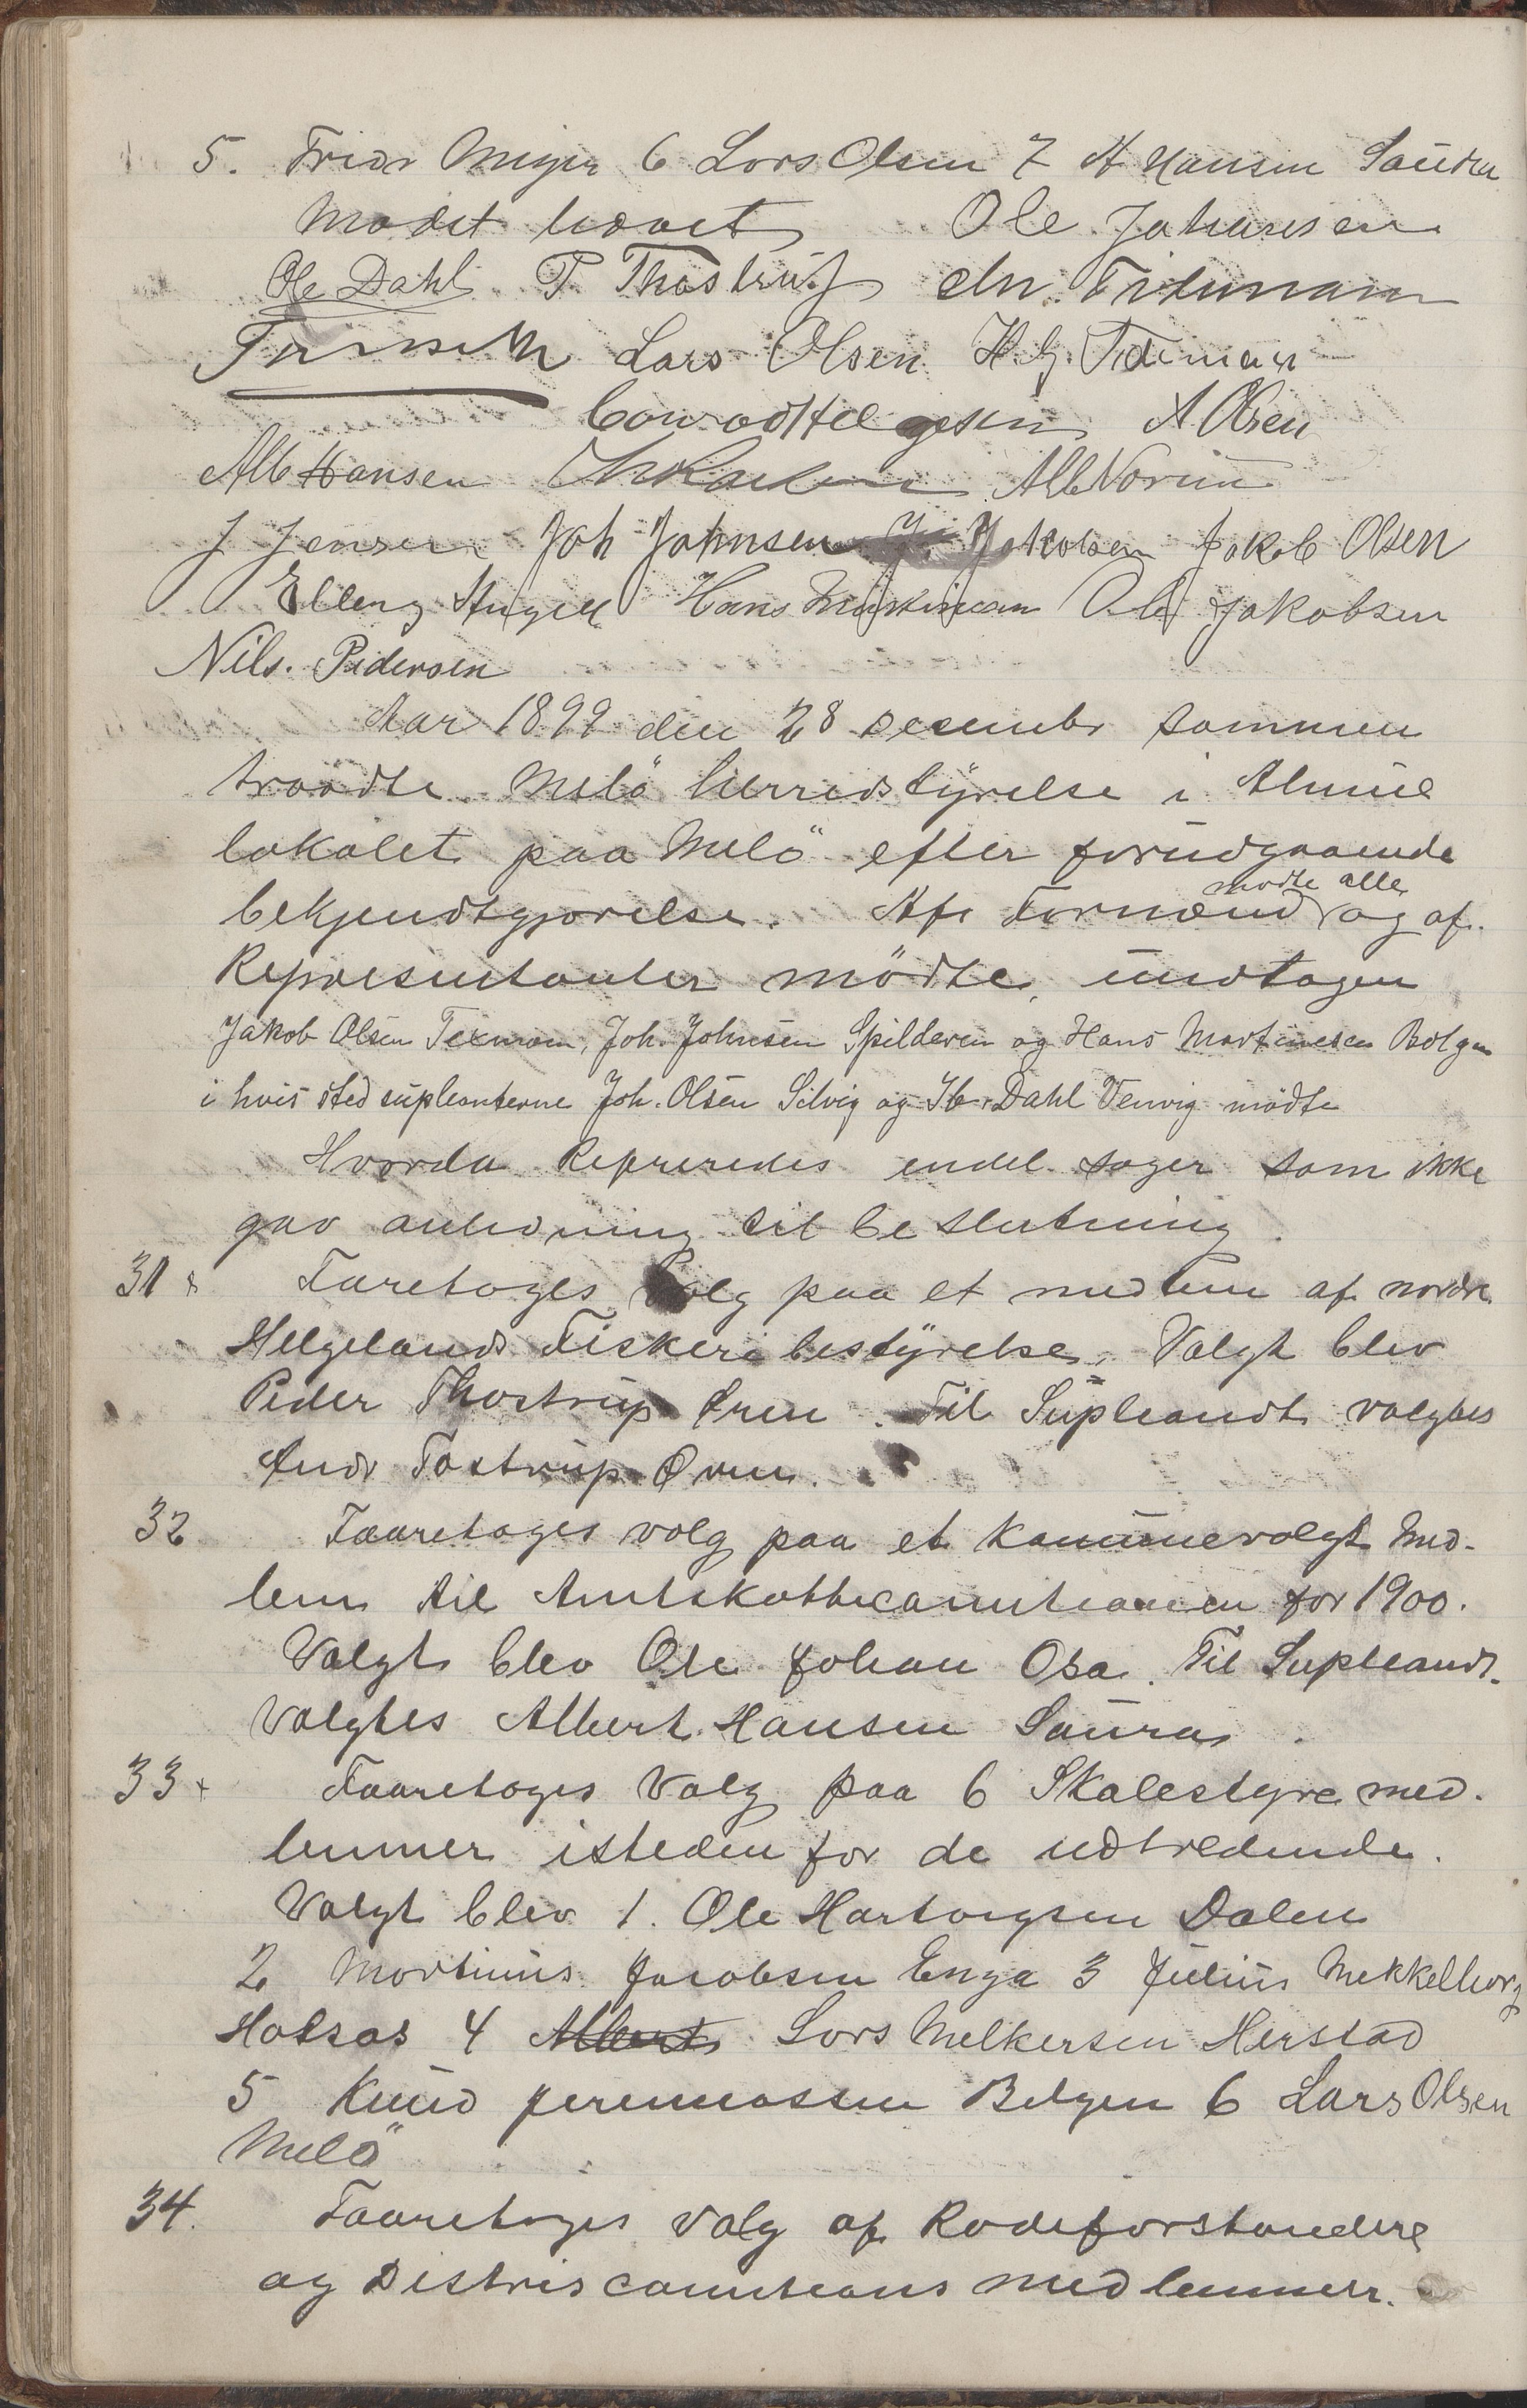 5. Fridr Meyer 6 Lars Olsen 7 A Hansen Saura
Mødet hævet Ole Johansen
Ole Dahl P. Thostrup An. Tidemann
Lars Olsen H. G. Tideman
Conrad Helgesen A Olsen
Alb Hansen Alb Norum
J Jensen Joh Johnsen J. Jakobsen Jakob Olsen
Elling Hans Ole Jakobsen
Nils. Pedersen
Aar 1899 den 28 Desembr sammen
traadte Melö herredstyrelse i Almue
lokalet paa Melö efter forudgaaende
bekjendtgjørelse. Af Formænd mødte alle og af
Representanter mödte, undtagen
Jakob Olsen Texmon, Joh. Johnsen Spilderen og Hans Martinesen Bolgen
i hvis sted supleanterne Joh. Olsen Selvig og Ib. Dahl Venvig mödte
Hvorda Repreredes endel sager som ikke
gav anledning til beslutning.
31 Faretoges Valg paa et medlem af nordre
Helgelands Fiskeribestyrelse. Valgt blev
Peder Thostrup Ørnen. Til Supleandt valgtes
Andr Tostrup Ørnen.
32 Faaretoges valg paa et Kommunevalgt Med-
lem til Amtskattecommisionen for 1900.
Valgt blev Ole Johan Osa. Til Supleandt.
Valgtes Albert Hansen Saura.
33 Faaretoges Valg paa 6 Skalestyremed-
lemmer isteden for de udtredende.
Valgt blev 1. Ole Hartvigsen Dalen
2 Martinus Jacobsen Enga 3 Julius Mekkelborg
Holsos 4 Albert Lars Melkersen Herstad
5 Knud Jeremiassen Bolgen 6 Lars Olsen
Melö
34. Faaretoges valg af Rodeforstandere
og Distriscommisions medlemmer.